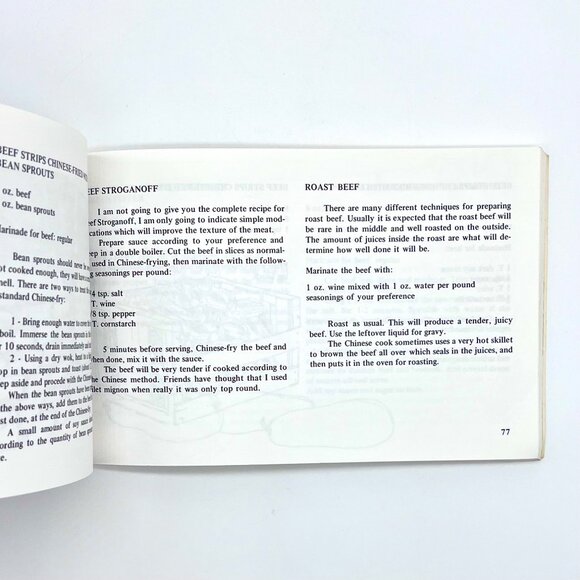 BEEF STRIPS CHINESE-FRIED
BEAN SPROUTS
oz. beef
oz. bean sprouts
Marinade for beef: regular
Bean sprouts should never
ot cooked enough, they will have
nell. There are two ways to
standard Chinese-fry:
1 - Bring enough water to
boil. Immerse the bean sprouts
r 10 seconds, drain immediately
2 - Using a dry wok, heat
op in bean sprouts and toast
ep aside and procede with the Chinese
When the bean sprouts have been
the above ways, add them to the
ost done, at the end of the Chinese-fry
A small amount of soy sauce
ccording to the quantity of bean
e.
EEF STROGANOFF
I am not going to give you the complete recipe for
eef Stroganoff, I am only going to indicate simple mod-
ications which will improve the texture of the meat.
Prepare sauce according to your preference and
eep in a double boiler. Cut the beef in slices as normal-
used in Chinese-frying, then marinate with the follow-
g seasonings per pound:
/4 tsp. salt
T. wine
/8 tsp. pepper
T. cornstarch
5 minutes before serving, Chinese-fry the beef and
hen done, mix it with the sauce.
The beef will be very tender if cooked according to
he Chinese method. Friends have thought that I used
filet mignon when really it was only top round.
ROAST BEEF
There are many different techniques for preparing
roast beef. Usually it is expected that the roast beef will
be rare in the middle and well roasted on the outside.
The amount of juices inside the roast are what will de-
termine how well done it will be.
Marinate the beef with:
1 oz. wine mixed with 1 oz. water per pound
seasonings of your preference
Roast as usual. This will produce a tender, juicy
beef. Use the leftover liquid for gravy.
The Chinese cook sometimes uses a very hot skillet
to brown the beef all over which seals in the juices, and
then puts it in the oven for roasting.
77